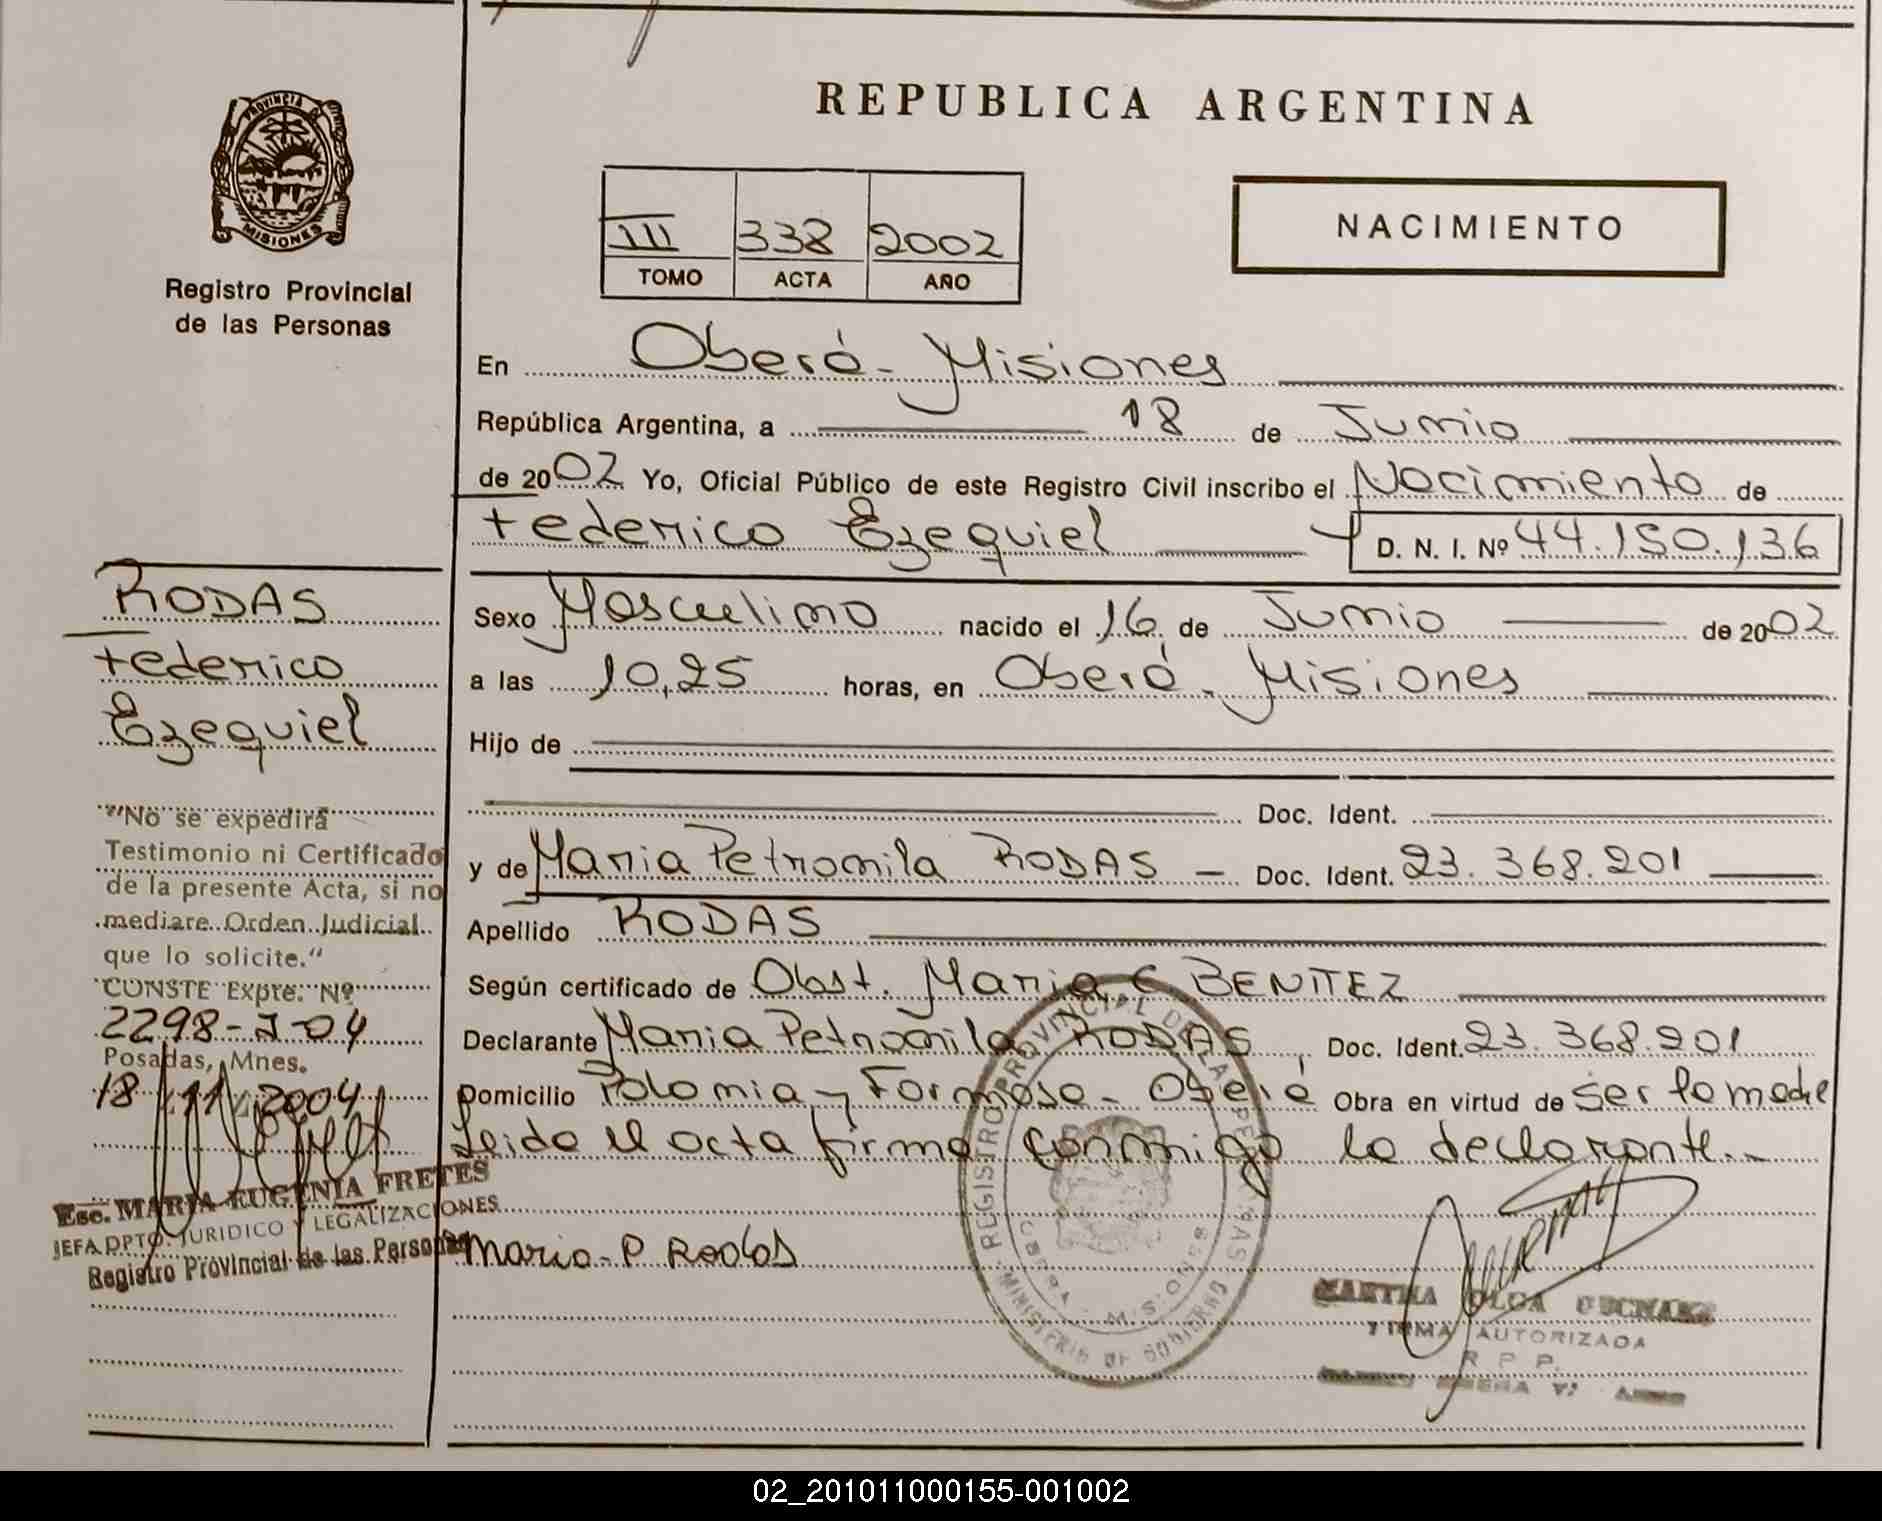 REPUBLICA ARGENTINA
PROVINCIA DE MISIONES
Registro Provincial
de las Personas
III 338 2002
TOMO ACTA AÑO
NACIMIENTO
En Oberá - Misiones
República Argentina, a 18 de Junio
de 2002 Yo, Oficial Público de este Registro Civil inscribo el Nacimiento de
Federico Ezequiel D. N. I. Nº 44.150.136
Sexo Masculino nacido el 16 de Junio de 2002
a las 10,25 horas, en Oberá - Misiones
Hijo de
Doc. Ident.
y de Maria Petronila RODAS - Doc. Ident. 23.368.201
Apellido RODAS
Según certificado de Obst. Maria C BENITEZ
Declarante Maria Petronila RODAS, Doc. Ident. 23.368.201
Domicilio Polonia y Formosa - Oberá Obra en virtud de ser la madre
Leida el acta firma conmigo la declarante.-
Maria - P Rodas
RODAS
Federico
Ezequiel
"No se expedirá
Testimonio ni Certificado
de la presente Acta, si no
mediare Orden Judicial
que lo solicite."
CONSTE Expte. Nº
2298-J-04
Posadas, Mnes.
18 11 2004
Esc. MARIA EUGENIA FRETES
JEFA DPTO. JURIDICO Y LEGALIZACIONES
Registro Provincial de las Personas
REGISTRO PROVINCIAL DE LAS PERSONAS
MINISTERIO DE GOBIERNO
OBERA - MISIONES
MARTHA OLGA
FIRMA AUTORIZADA
R P P.
02_201011000155-001002